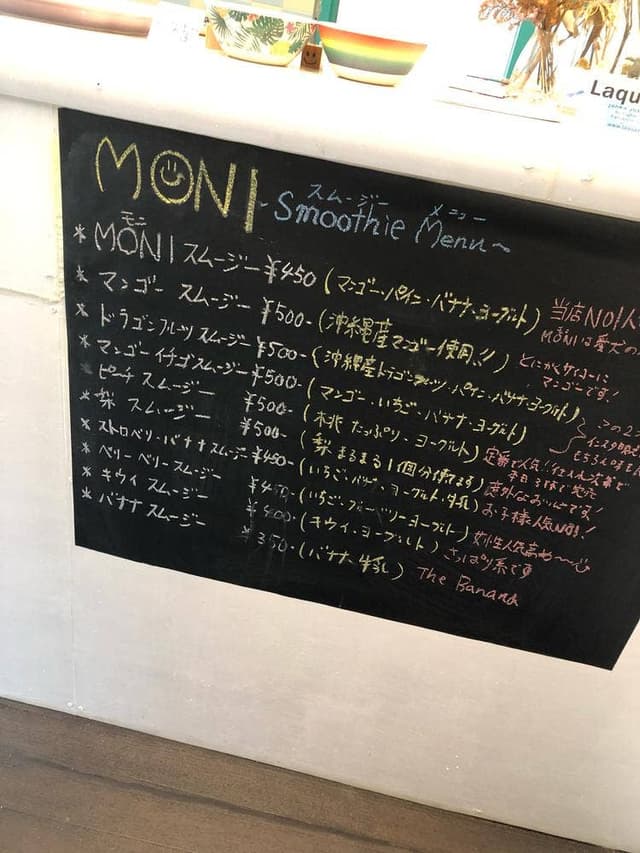 Laqu
MONI
スムージー メニュー
~Smoothie Menu~
モニ
* MONI スムージー ¥450 (マンゴー・パイン・バナナ・ヨーグルト) 当店NO1人
MONIは愛犬の
* マンゴー スムージー ¥500- (沖縄産マンゴー使用!!) とにかくサイコーに
マンゴーです!
* ドラゴンフルーツ スムージー ¥500- (沖縄産ドラゴンフルーツ・パイン・バナナ・ヨーグルト)
* マンゴーイチゴスムージー ¥500- (マンゴー・いちご・バナナ・ヨーグルト)
* ピーチ スムージー ¥500- (桃 たっぷり・ヨーグルト)
* 梨 スムージー ¥500- (梨 まるまる1個分使てます)
* ストロベリー・バナナスムージー ¥450- (いちご・バナナ・ヨーグルト・牛乳) お子様人気NO1!
* ベリーベリー スムージー (いちご・ブルーベリー・ヨーグルト) 女性人気高め〜〜
* キウイ スムージー (キウイ・ヨーグルト) さっぱり系です
* バナナ スムージー ¥350- (バナナ・牛乳) The Banana